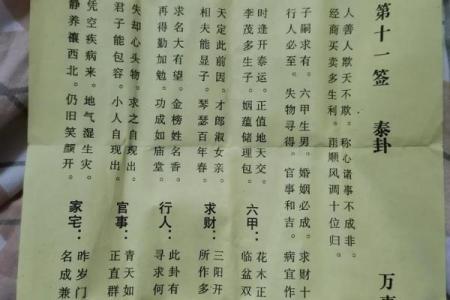 第十一签 泰卦 万事
人善人欺天不欺。称心诸事不成非。
经商买卖多生利。雨顺风调十位归。
子嗣求有。六甲生男。婚姻必成。求财十
行人必至。失物寻得。官事和吉。病宜作
时逢开泰运。正值地天交。
李茂多生子。姻蕴储理包。
六甲：
花木正
临盆双
天定此前因。才郎淑女亲。
相夫能显子。琴瑟百年春。
求财：
三阳开
所作多
求名大有望。金榜姓名香。
再得勤加勉。功成如庙堂。
行人：
此卦有
寻求何
失却心头物。求之自现出。
君子能包容。小人自现出。
官事：
青天如
正直群
凭空疾病来。地气湿生灾。
静养禳西北。仍旧笑颜开。
家宅：
昨岁门
名成兼